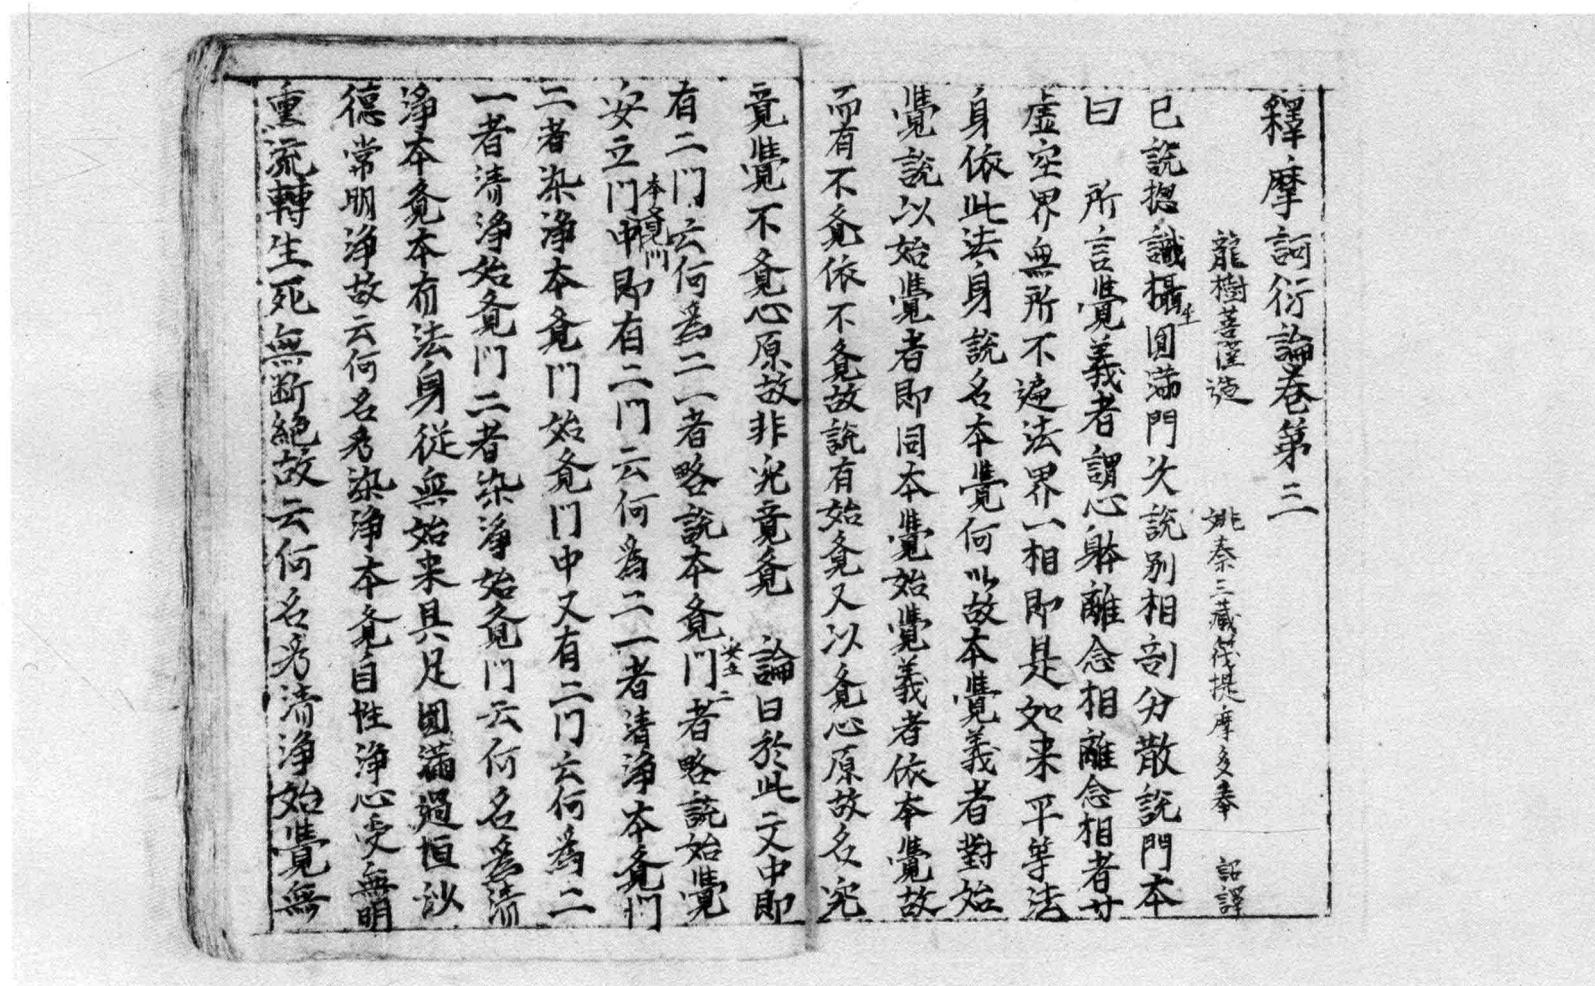 釋摩訶衍論卷第三
龍樹菩薩造　姚秦三藏筏提摩多奉　詔譯
已説揔識攝生圓滿門次説別相剖分散説門本
曰　所言覺義者謂心躰離念相離念相者廿
虛空界無所不遍法界一相即是如来平等法
身依此法身説名本覺何以故本覺義者對始
覺説以始覺者即同本覺始覺義者依本覺故
而有不覔依不覔故説有始覔又以覔心原故名究
竟覺不覔心原故非究竟覔　論曰於此文中即
有二門云何為二一者略説本覔門安立二者略説始覺
安立門本覔門中即有二門云何為二一者清浄本覔門
二者染浄本覔門始覔門中又有二門云何為二
一者清浄始覔門二者染浄始覔門云何名為清
浄本覔本有法身從無始来具足圓滿過恒沙
德常明浄故云何名為染浄本覔自性浄心受無明
熏流轉生死無断絶故云何名為清浄始覺無